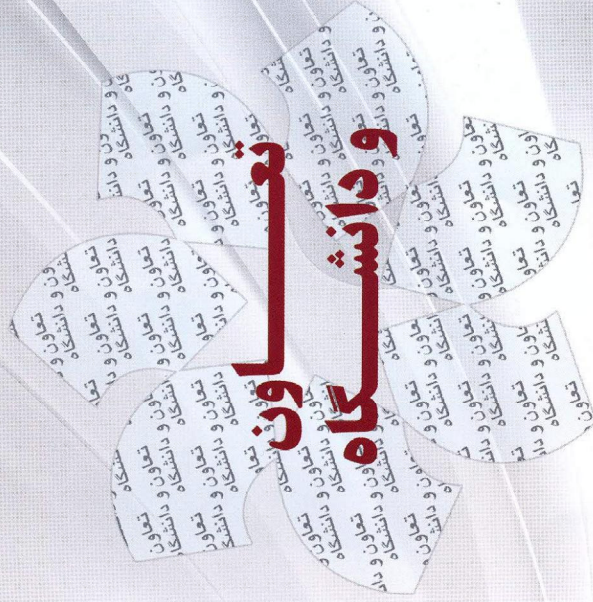 تعاون
و دانشگاه